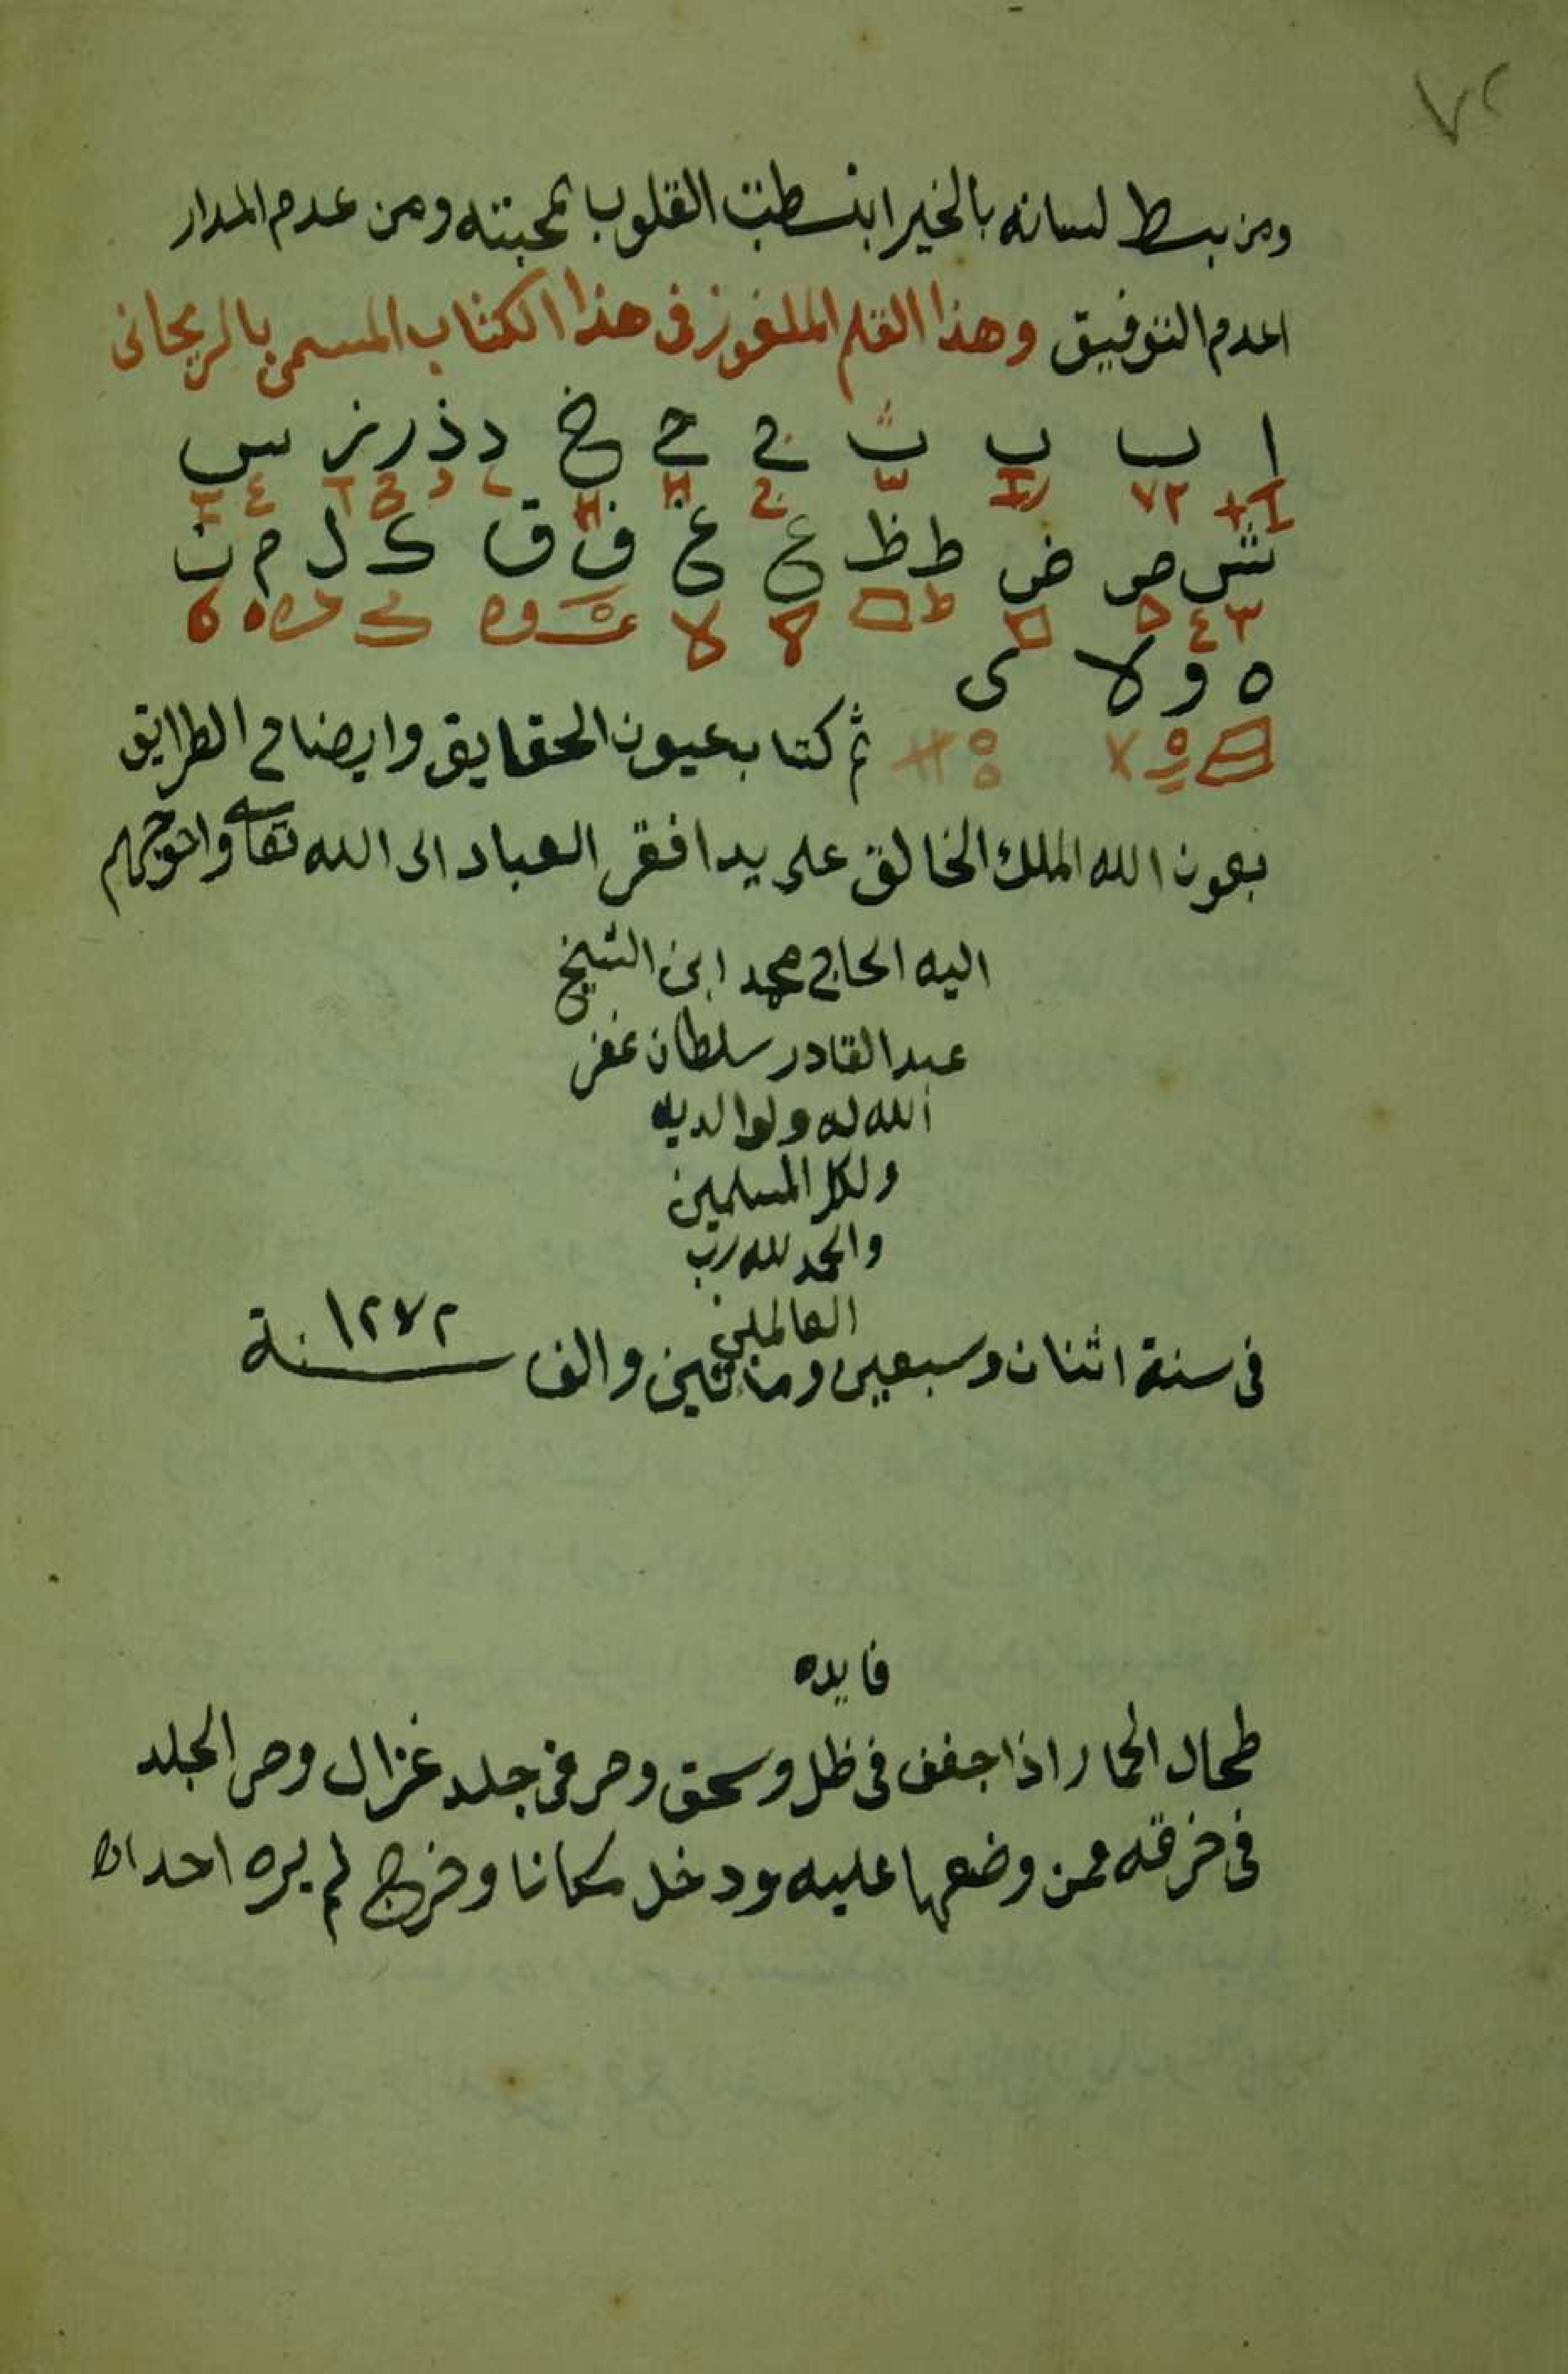 ٧٢
ومن بسط لسانه بالخير ابنسطت القلوب بمحبته ومن عدم المدار
اعدم التوفيق وهذا القلم الملغوز فى هذا الكتاب المسمى بالريحانى
ا ب ب ث ج ح خ د ذ ر ز س
ش ص ض ط ظ ع غ ف ق ك ل م ن
ه و لا ى
تم كتاب عيون الحقايق وايضاح الطرايق
بعون الله الملك الخالق على يد افقر العباد الى الله تعالى واحوجهم
اليه الحاج محمد ابن الشيخ
عبد القادر سلطان غفر
الله له ولوالديه
ولكل المسلمين
والحمد لله رب
العالمين
فى سنة اثنان وسبعين وماتين والف سنة ١٢٧٢
فايده
طحال الحمار اذا جفف فى ظل وسحق وصر فى جلد غزال وصر الجلد
فى خرقه فمن وضعها عليه ودخل مكانا وخرج لم يره احد اه